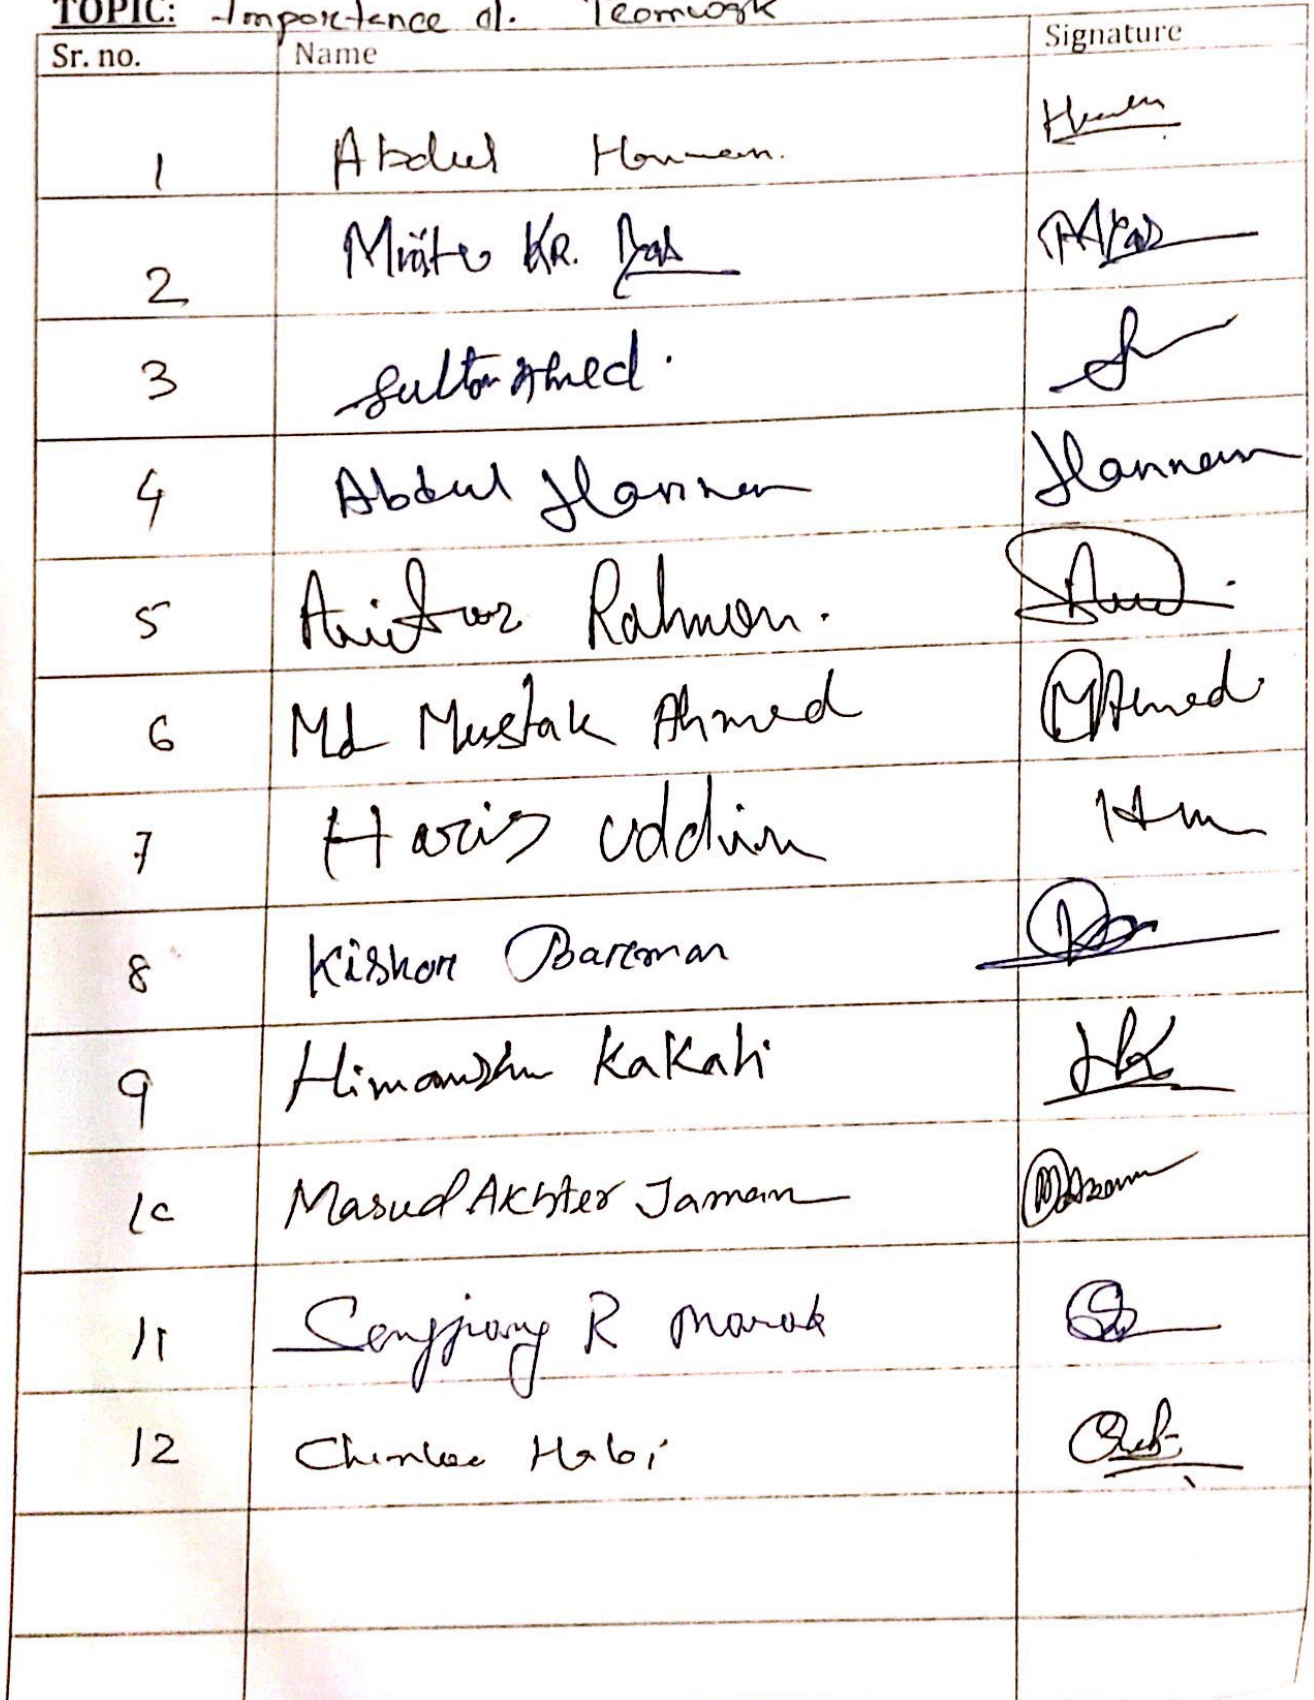 TOPIC: Importance of. Teamwork
Sr. no. Name Signature
1 Abdul Hannan.
2 KR. Das
3 Sultan Ahmed.
4 Abdul Hannan Hannan
5 Rahman.
6 Md Mustak Ahmed MAhmed
7 Haris Uddin
8 Kishor Barman
9 Himanshu Kakati HK
10 Masud Akhter Jaman
11 Sengjrang R Marak
12